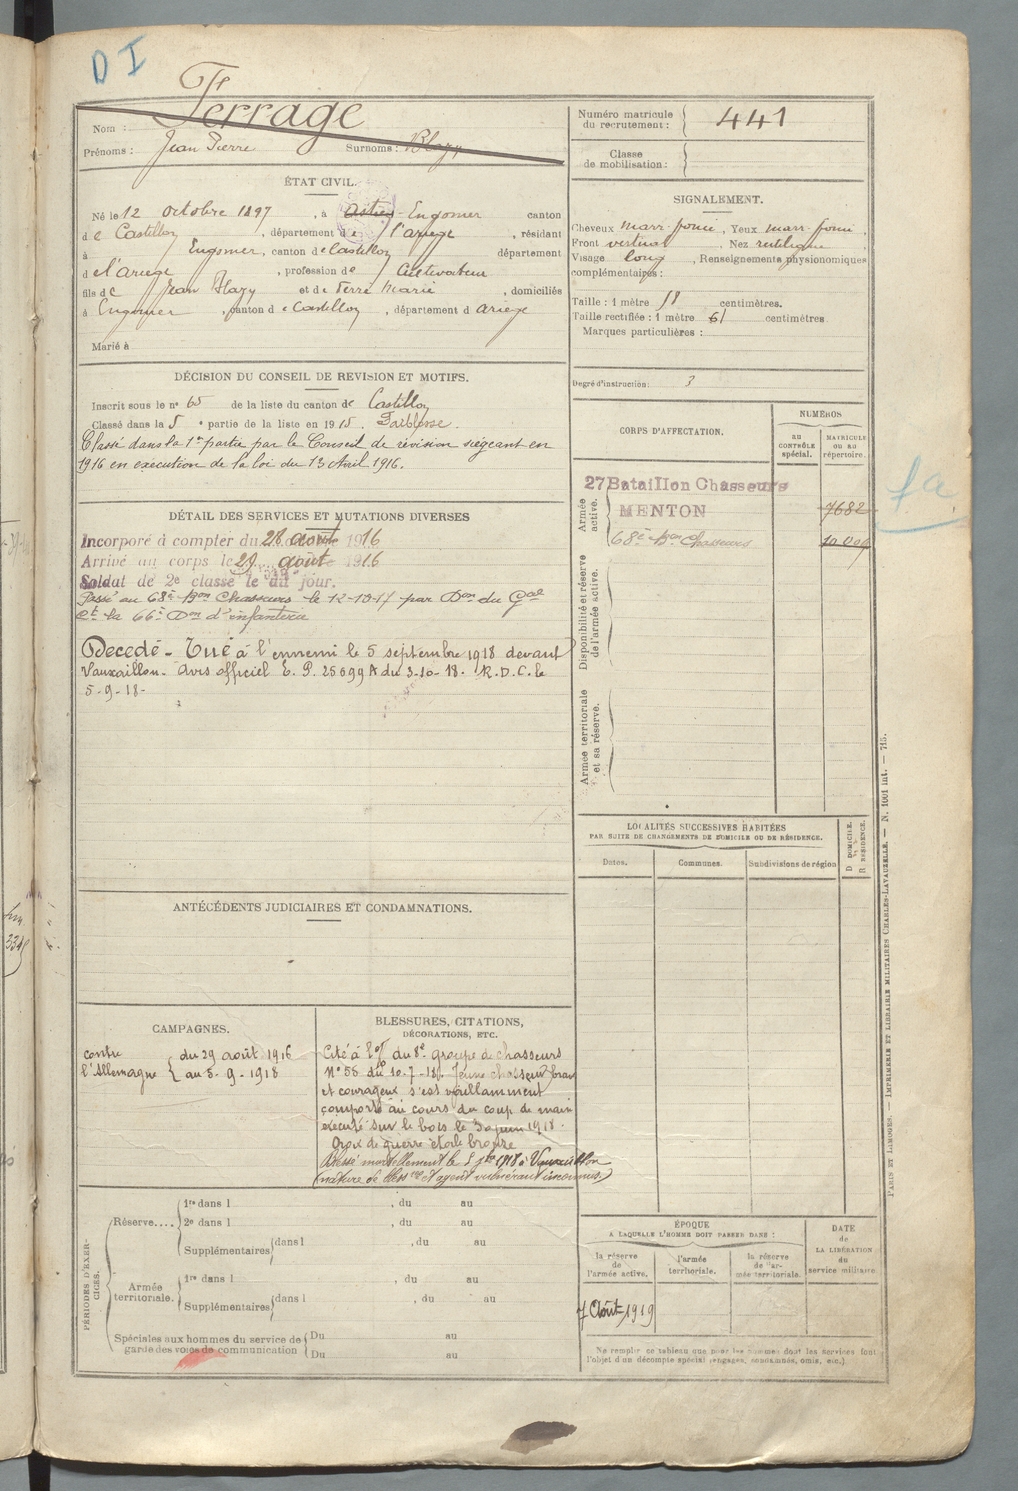 D I
Ferrage
Nom :
Prénoms : Jean Pierre Surnoms : Blazy
Numéro matricule du recrutement : 441
Classe de mobilisation :
ÉTAT CIVIL.
Né le 12 octobre 1897, à Engomer canton
de Castillon, département de l'ariège, résidant
à Engomer, canton de Castillon département
de l'ariège, profession de Cultivateur
fils de Jean Blazy et de Ferré Marie, domiciliés
à Engomer, canton de Castillon, département d ariège
Marié à
SIGNALEMENT.
Cheveux marr foncé, Yeux marr foncé,
Front vertical, Nez rectiligne,
Visage long, Renseignements physionomiques
complémentaires :
Taille : 1 mètre 58 centimètres.
Taille rectifiée : 1 mètre 61 centimètres
Marques particulières :
Degré d'instruction : 3
DÉCISION DU CONSEIL DE REVISION ET MOTIFS.
Inscrit sous le n° 65 de la liste du canton de Castillon
Classé dans la 5 e partie de la liste en 1915. Faiblesse.
Classé dans la 1re partie par le Conseil de révision siégeant en
1916 en exécution de la loi du 13 Avril 1916.
CORPS D'AFFECTATION.
NUMÉROS
au CONTRÔLE spécial.
MATRICULE ou au répertoire.
Armée active.
27 Bataillon Chasseurs
MENTON 7682
68e Bon Chasseurs 10009
Disponibilité et réserve de l'armée active.
Armée territoriale et sa réserve.
fa
DÉTAIL DES SERVICES ET MUTATIONS DIVERSES
Incorporé à compter du 28 août 1916
Arrivé au corps le 29 août 1916
Soldat de 2e classe le dit jour.
Passé au 68e Bon Chasseurs le 12-10-17 par Don du Gal
Ct la 66e Don d'infanterie
Decedé - Tué à l'ennemi le 5 septembre 1918 devant
Vauxaillon. avis officiel E. P. 25699 A du 3-10-18. R.D.C. le
5-9-18-
LOCALITÉS SUCCESSIVES HABITÉES
PAR SUITE DE CHANGEMENTS DE DOMICILE OU DE RÉSIDENCE.
Dates. Communes. Subdivisions de région
D DOMICILE. R RÉSIDENCE.
ANTÉCÉDENTS JUDICIAIRES ET CONDAMNATIONS.
CAMPAGNES.
contre l'Allemagne { du 29 août 1916
au 5-9-1918
BLESSURES, CITATIONS,
DÉCORATIONS, ETC.
Cité à l'O/ du 8e groupe de chasseurs
N° 58 du 10-7-18. Jeune chasseur brave
et courageux s'est vaillamment
comporté au cours du coup de main
exécuté sur le bois le 30 juin 1918.
Croix de guerre étoile bronze
Blessé mortellement le 5 7bre 1918 à Vauxaillon
(nature de bless re et agent vulnérant inconnus.)
PÉRIODES D'EXERCICES.
Réserve....
1re dans l , du au
2e dans l , du au
Supplémentaires { dans l , du au
Armée territoriale.
1re dans l , du au
Supplémentaires { dans l , du au
Spéciales aux hommes du service de garde des voies de communication
Du au
Du au
ÉPOQUE
A LAQUELLE L'HOMME DOIT PASSER DANS :
la réserve de l'armée active.
l'armée territoriale.
la réserve de l'armée territoriale.
DATE de LA LIBÉRATION du service militaire.
7 Août 1919
Ne remplir ce tableau que pour les hommes dont les services font
l'objet d'un décompte spécial (engagés, condamnés, omis, etc.).
PARIS ET LIMOGES. — IMPRIMERIE ET LIBRAIRIE MILITAIRES CHARLES-LAVAUZELLE. — N. 1001 int. — 715.